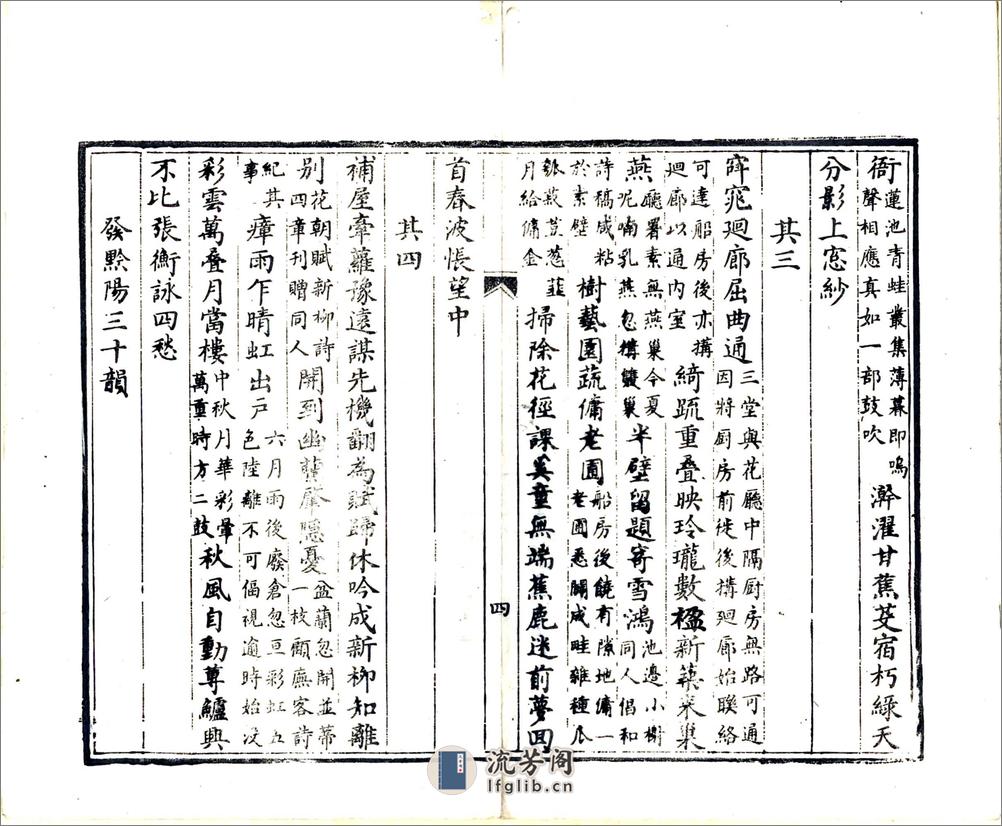 衙蓮池青蛙叢集薄暮即鳴聲相應真如一部鼓吹澣濯甘蕉芟宿朽綠天
分影上窓紗
其三
窕廻廊屈曲通三堂與花廳中隔厨房無路可通因將厨房前徙後構廻廊始聯絡
可達船房後亦構廻廊以通內室綺疏重叠映玲瓏數楹新築来巢
燕廳署素無燕巢今夏呢喃乳燕忽構雙巢半壁留題寄雪鴻池邊小榭同人倡和
詩稿咸粘於素壁樹藝園蔬傭老圃船房後饒有隙地傭一老圃悉闢成畦雜種瓜
菽荳葱韮月給傭金掃除花徑課奚童無端蕉鹿迷前夢回
四
首春波悵望中
其四
補屋牽蘿豫遠謀先機翻為賦歸休吟成新柳知離
別花朝賦新柳詩四章刊贈同人開到幽蘭肇隱憂盆蘭忽開並蒂一枝客詩
紀其事瘴雨乍晴虹出戶六月雨後廢倉忽亘彩虹五色陸離不可偪視逾時始没
彩雲萬叠月當樓中秋月華彩暈萬重時方二鼓秋風自動蓴鱸興
不比張衡詠四愁
發黔陽三十韻
流芳阁
lfglib.cn